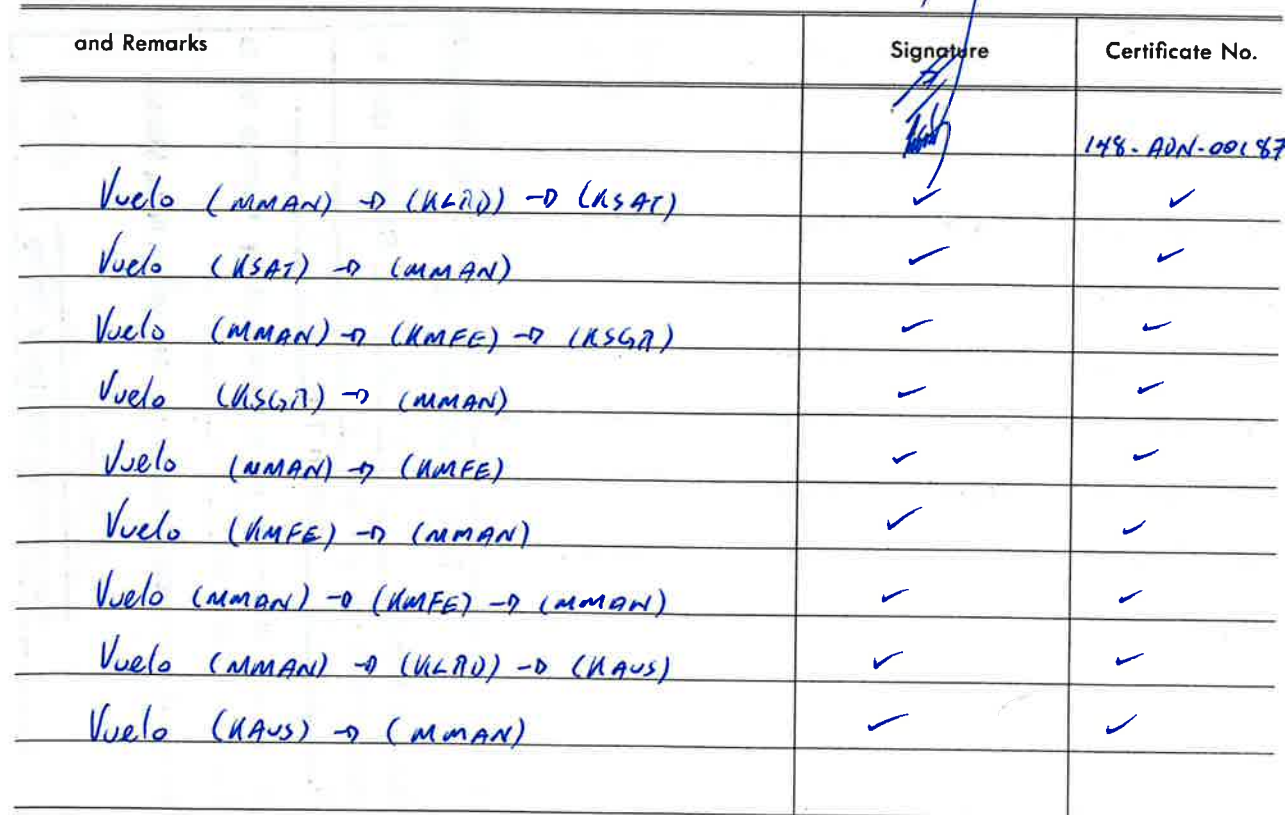 and Remarks Signature Certificate No.
Vuelo (MMAN) → (KLRD) → (KSAT) ✓ ✓
Vuelo (KSAT) → (MMAN) ✓ ✓
Vuelo (MMAN) → (KMFE) → (KSGR) ✓ ✓
Vuelo (KSGR) → (MMAN) ✓ ✓
Vuelo (MMAN) → (KMFE) ✓ ✓
Vuelo (KMFE) → (MMAN) ✓ ✓
Vuelo (MMAN) → (KMFE) → (MMAN) ✓ ✓
Vuelo (MMAN) → (KLRD) → (KAUS) ✓ ✓
Vuelo (KAUS) → (MMAN) ✓ ✓